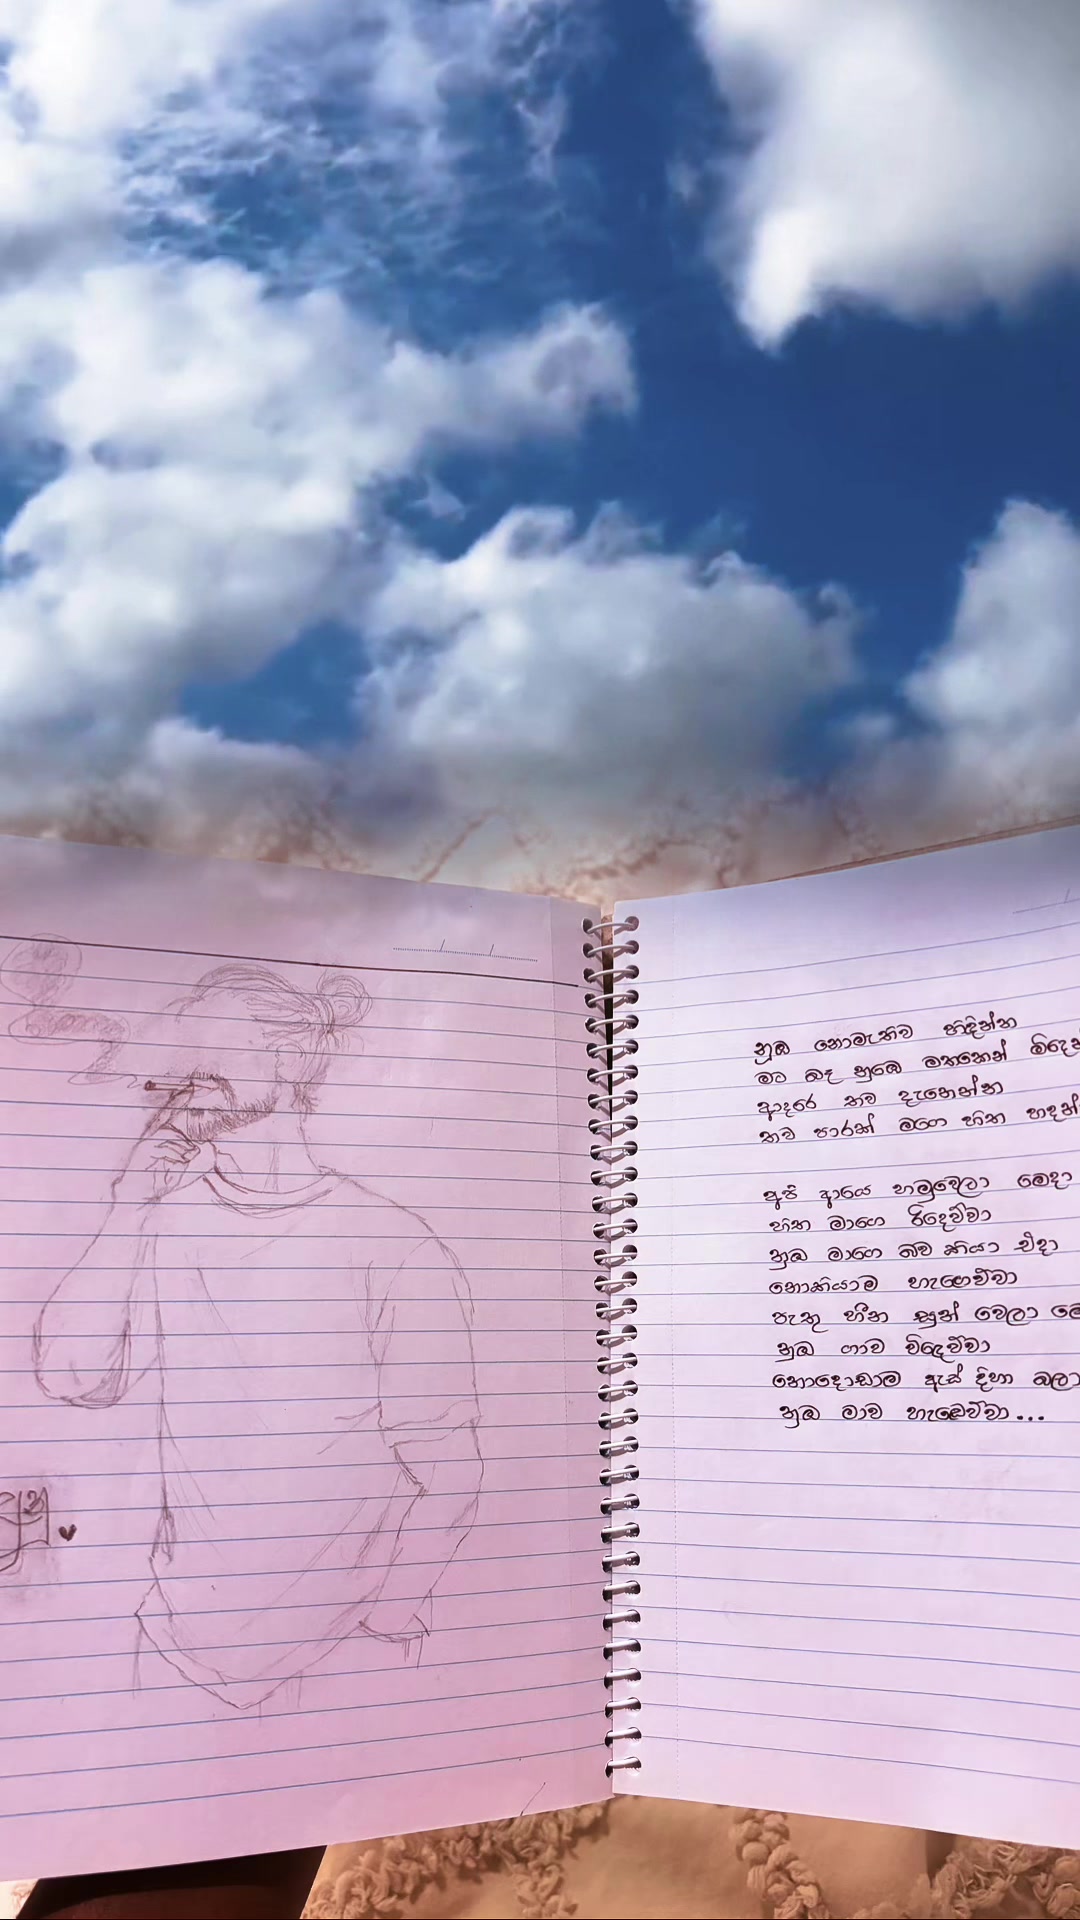 නුඹ නොමැතිව හිඳින්න
මට බෑ නුඹේ මතකෙන්
ආදරේ තව දැනෙන්න
තව පාරක් මගෙ හිත හදන්
අපි ආයෙ හමුවෙලා මෙදා
හිත මාගෙ රිදෙව්වා
නුඹ මාගෙ බව කියා එදා
නොකියාම හැඟෙව්වා
පැතූ හීන සුන් වෙලා
නුඹ ගාව විඳෙව්වා
නොදොඩාම ඇස් දිහා බලා
නුඹ මාව හැඬෙව්වා...